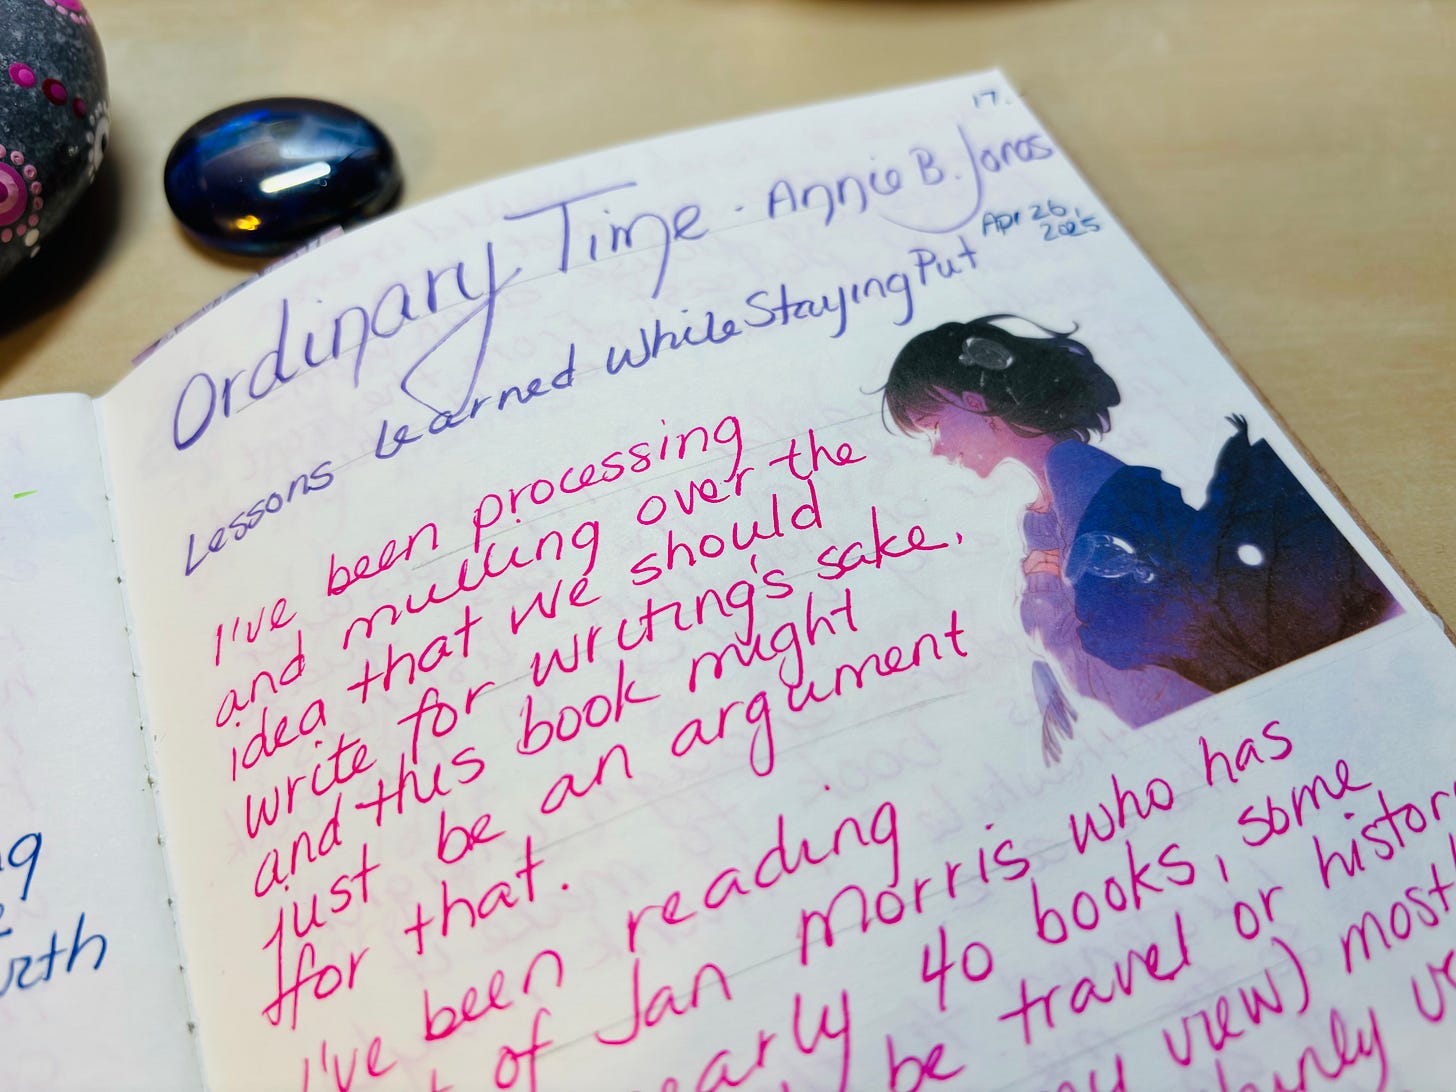 17.
Ordinary Time. Annie B. Jones
Apr 26,
2025
Lessons Learned While Staying Put
I've been processing
and mulling over the
idea that we should
write for writing's sake,
and this book might
just be an argument
for that.
I've been reading
of Jan Morris who has
40 books, some
be travel or
view) most
rth